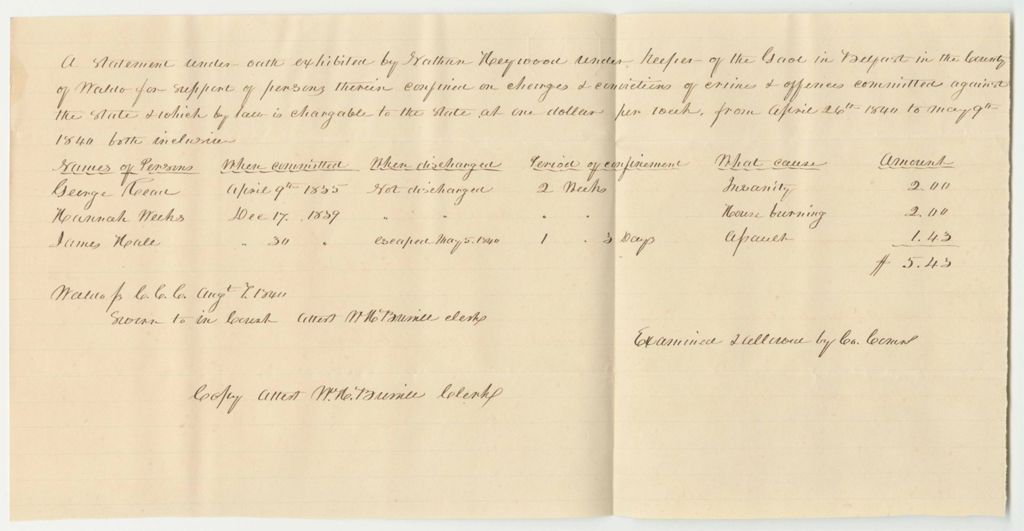 A statement under oath exhibited by Nathan Heywood under keeper of the Gaol in Belfast in the County
of Waldo for support of persons therein confined on charges & convictions of crimes & offences committed against
the State & which by law is chargable to the State at one dollar per week, from April 26th 1840 to May 9th
1840 both inclusive
Names of Persons When committed When discharged Period of confinement What cause Amount
George April 9th 1835 Not discharged 2 Weeks Insanity 2.00
Hannah Weeks Dec 17. 1839 " " " " House burning 2.00
James Hall " 30 " escaped May 5. 1840 1 " 3 Days Assault 1.43
$ 5.43
Waldo ss C. C. C. Augt 7. 1840
Sworn to in Court Attest Clerk
Examined & allowed by Co. Coms
Copy Attest Clerk